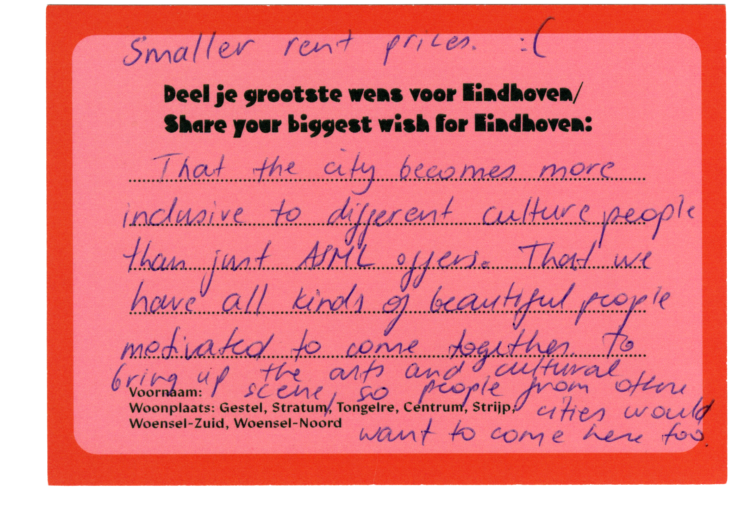 Smaller rent prices. :(
Deel je grootste wens voor Eindhoven/
Share your biggest wish for Eindhoven:
That the city becomes more
inclusive to different culture people
than just ASML offers. That we
have all kinds of beautiful people
motivated to come together to
bring up the arts and cultural
Voornaam:
scene, so people from other
Woonplaats: Gestel, Stratum, Tongelre, Centrum, Strijp,
cities would
Woensel-Zuid, Woensel-Noord
want to come here too.